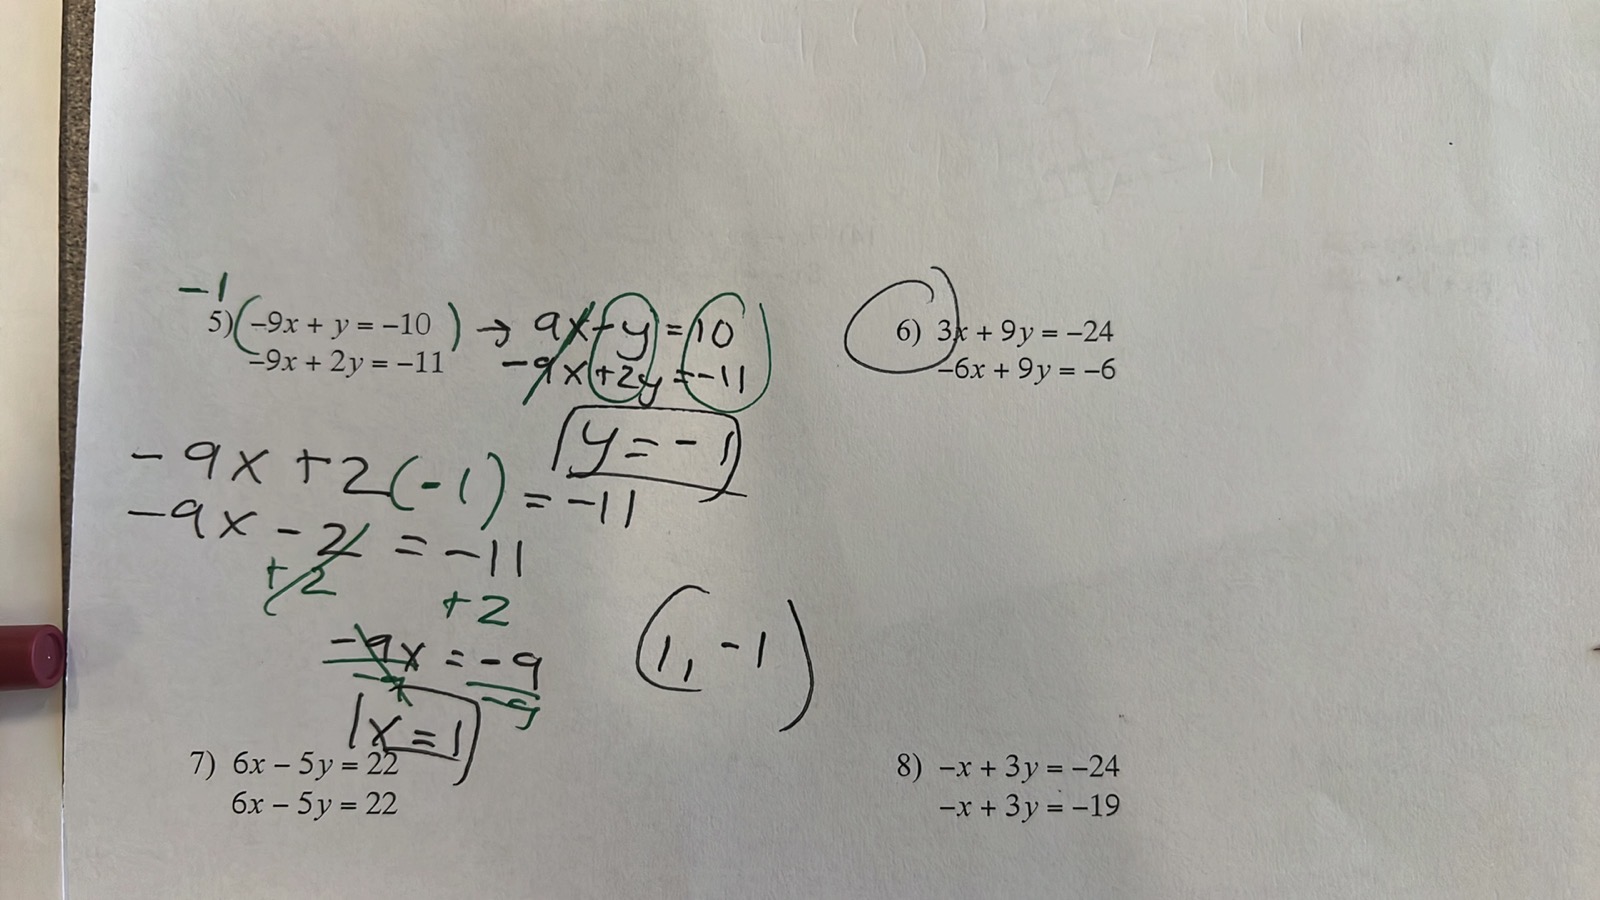 -1
5) (-9x + y = -10) → 9x - y = 10
-9x + 2y = -11 -9x + 2y = -11
y = -1
-9x + 2(-1) = -11
-9x - 2 = -11
+2 +2
-9x = -9
-9 -9
x = 1
(1, -1)
6) 3x + 9y = -24
-6x + 9y = -6
7) 6x - 5y = 22
6x - 5y = 22
8) -x + 3y = -24
-x + 3y = -19